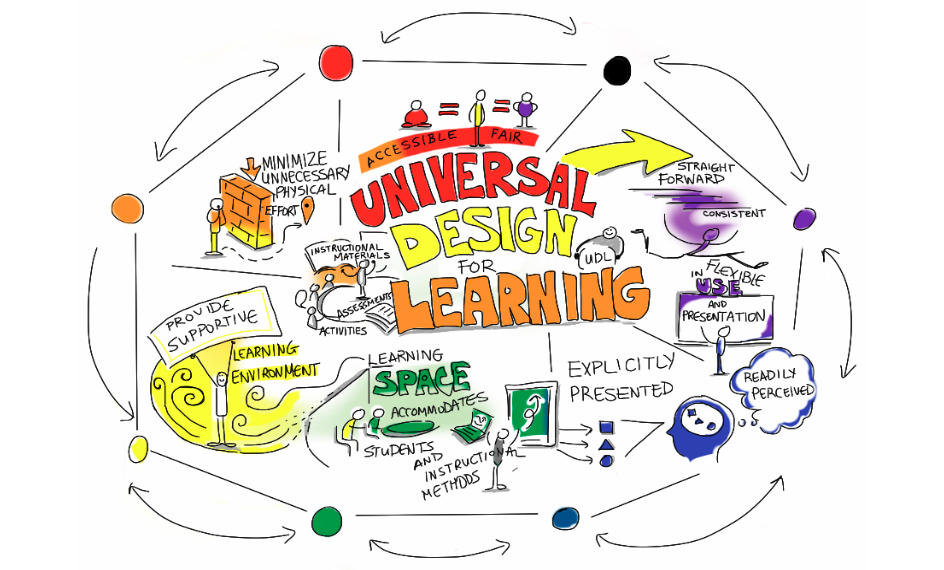 ACCESSIBLE FAIR
UNIVERSAL
DESIGN
FOR
LEARNING
UDL
MINIMIZE
UNNECESSARY
PHYSICAL
EFFORT
INSTRUCTIONAL
MATERIALS
ASSESSMENTS
ACTIVITIES
STRAIGHT
FORWARD
CONSISTENT
FLEXIBLE
IN USE
AND
PRESENTATION
READILY
PERCEIVED
EXPLICITLY
PRESENTED
LEARNING
SPACE
ACCOMMODATES
STUDENTS
AND
INSTRUCTIONAL
METHODS
PROVIDE
SUPPORTIVE
LEARNING
ENVIRONMENT